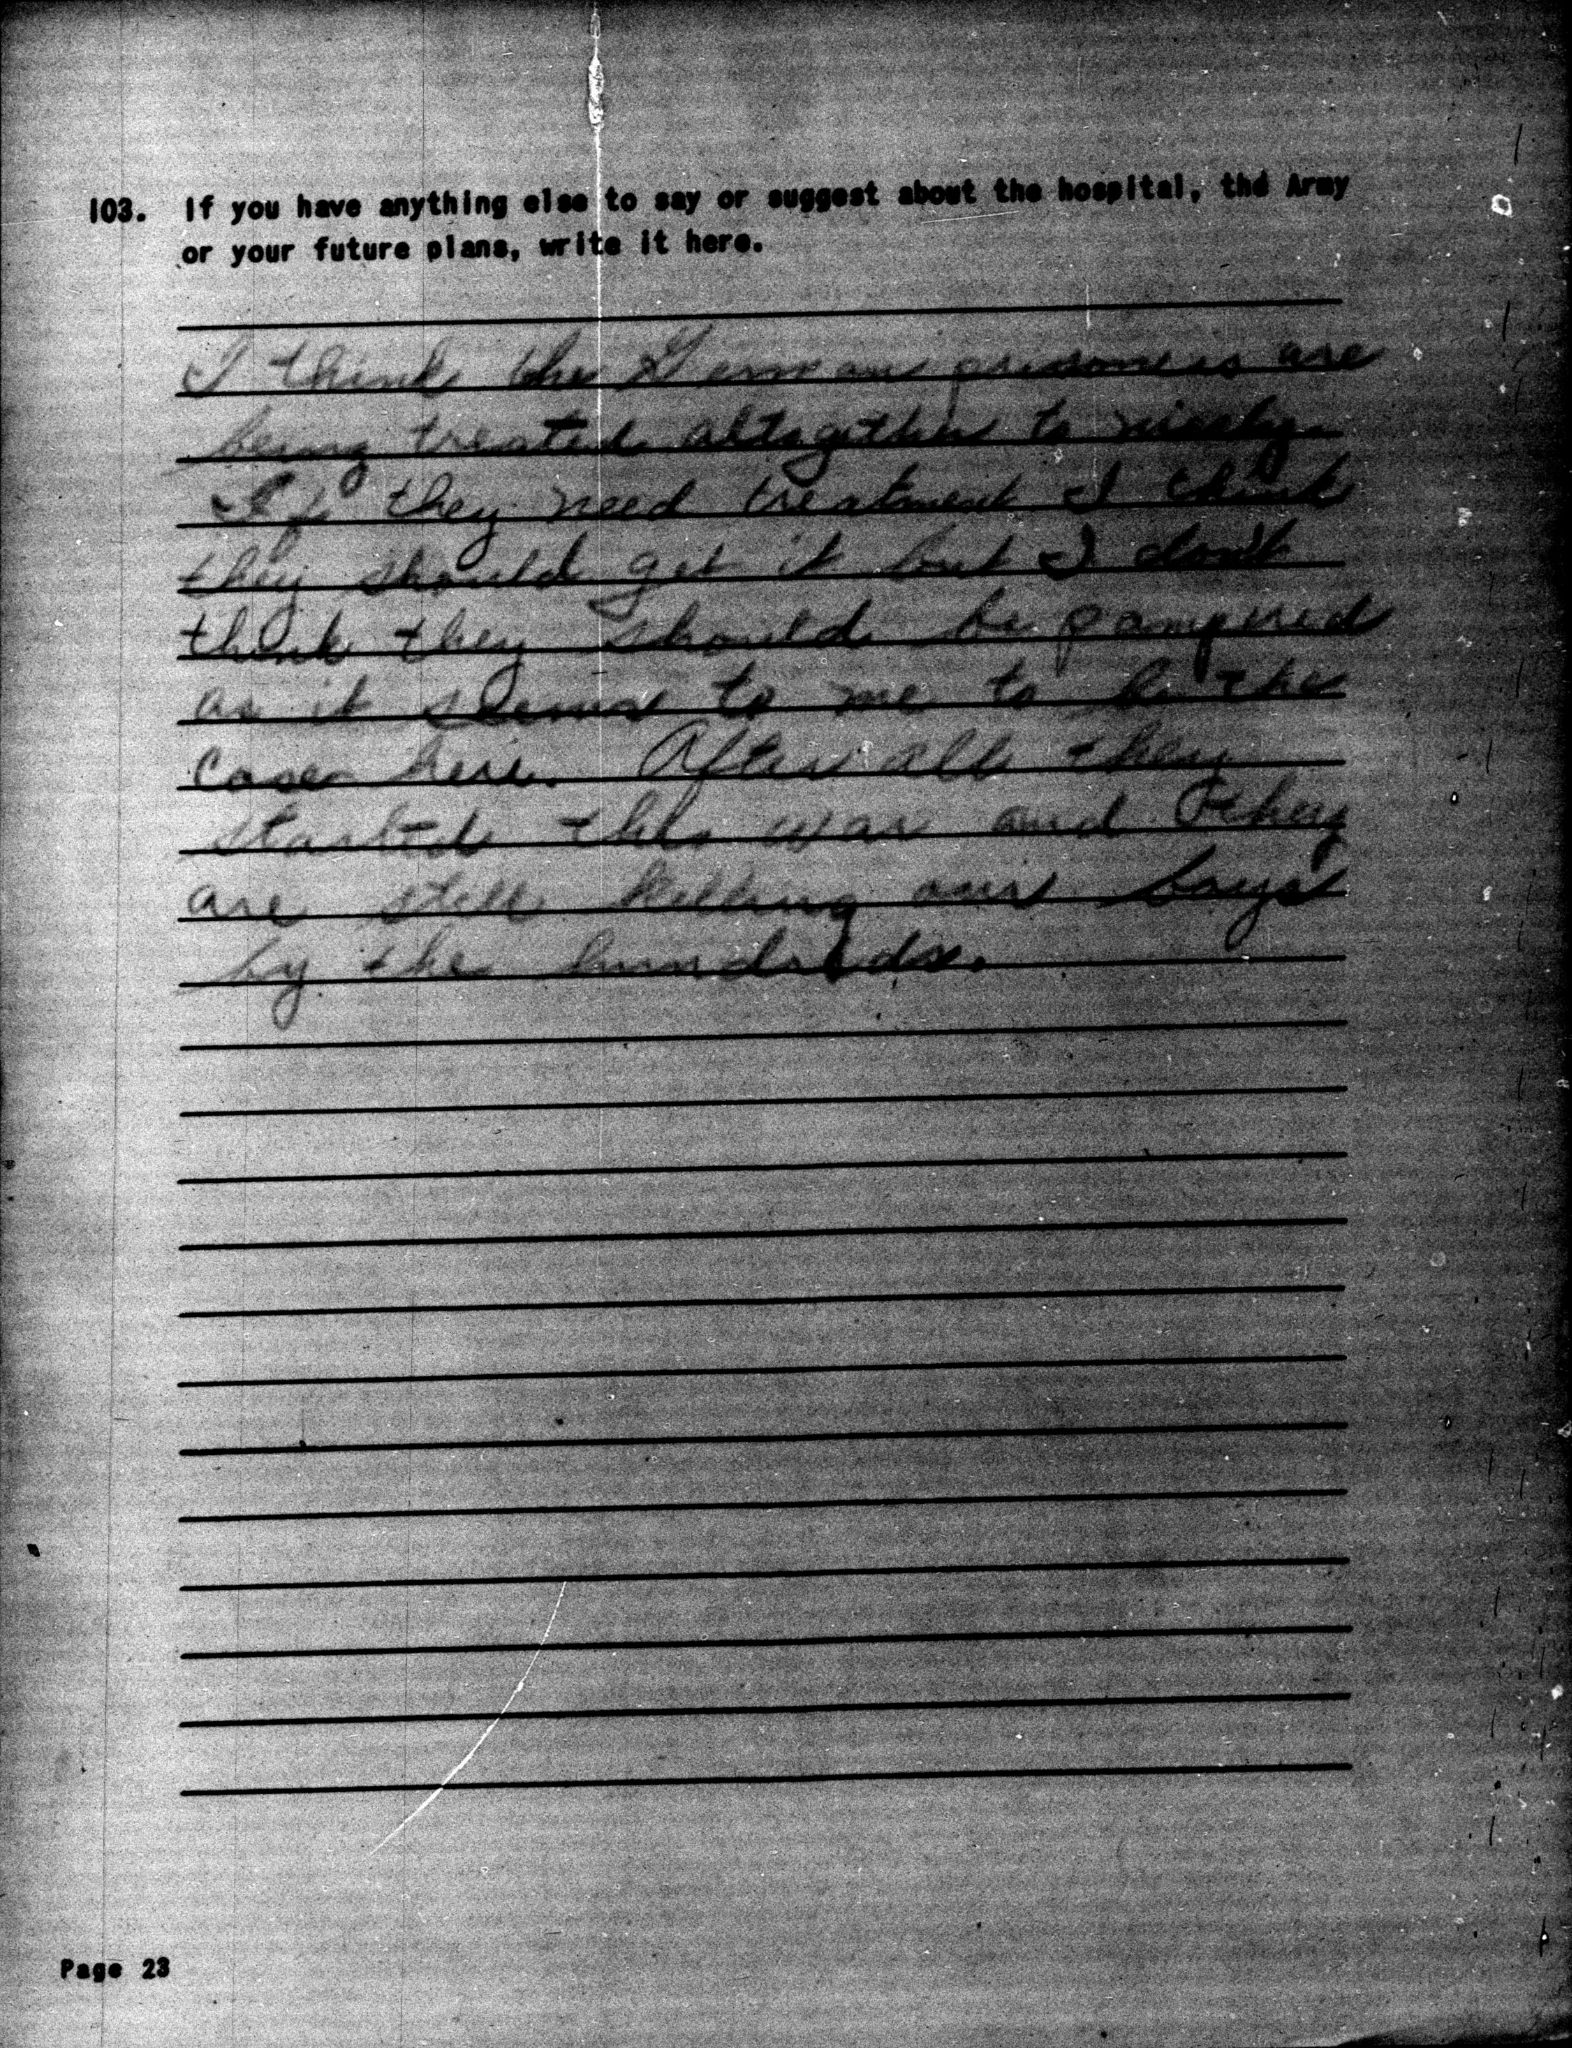 103. If you have anything else to say or suggest about the hospital, the Army
or your future plans, write it here.
I think the German prisoners are
being treated altogether to nicely.
If they need treatment I think
they should get it but I don't
think they should be pampered
as it seems to me to be the
case here. After all they
started this war and they
are still killing our boys
by the hundreds.
Page 23